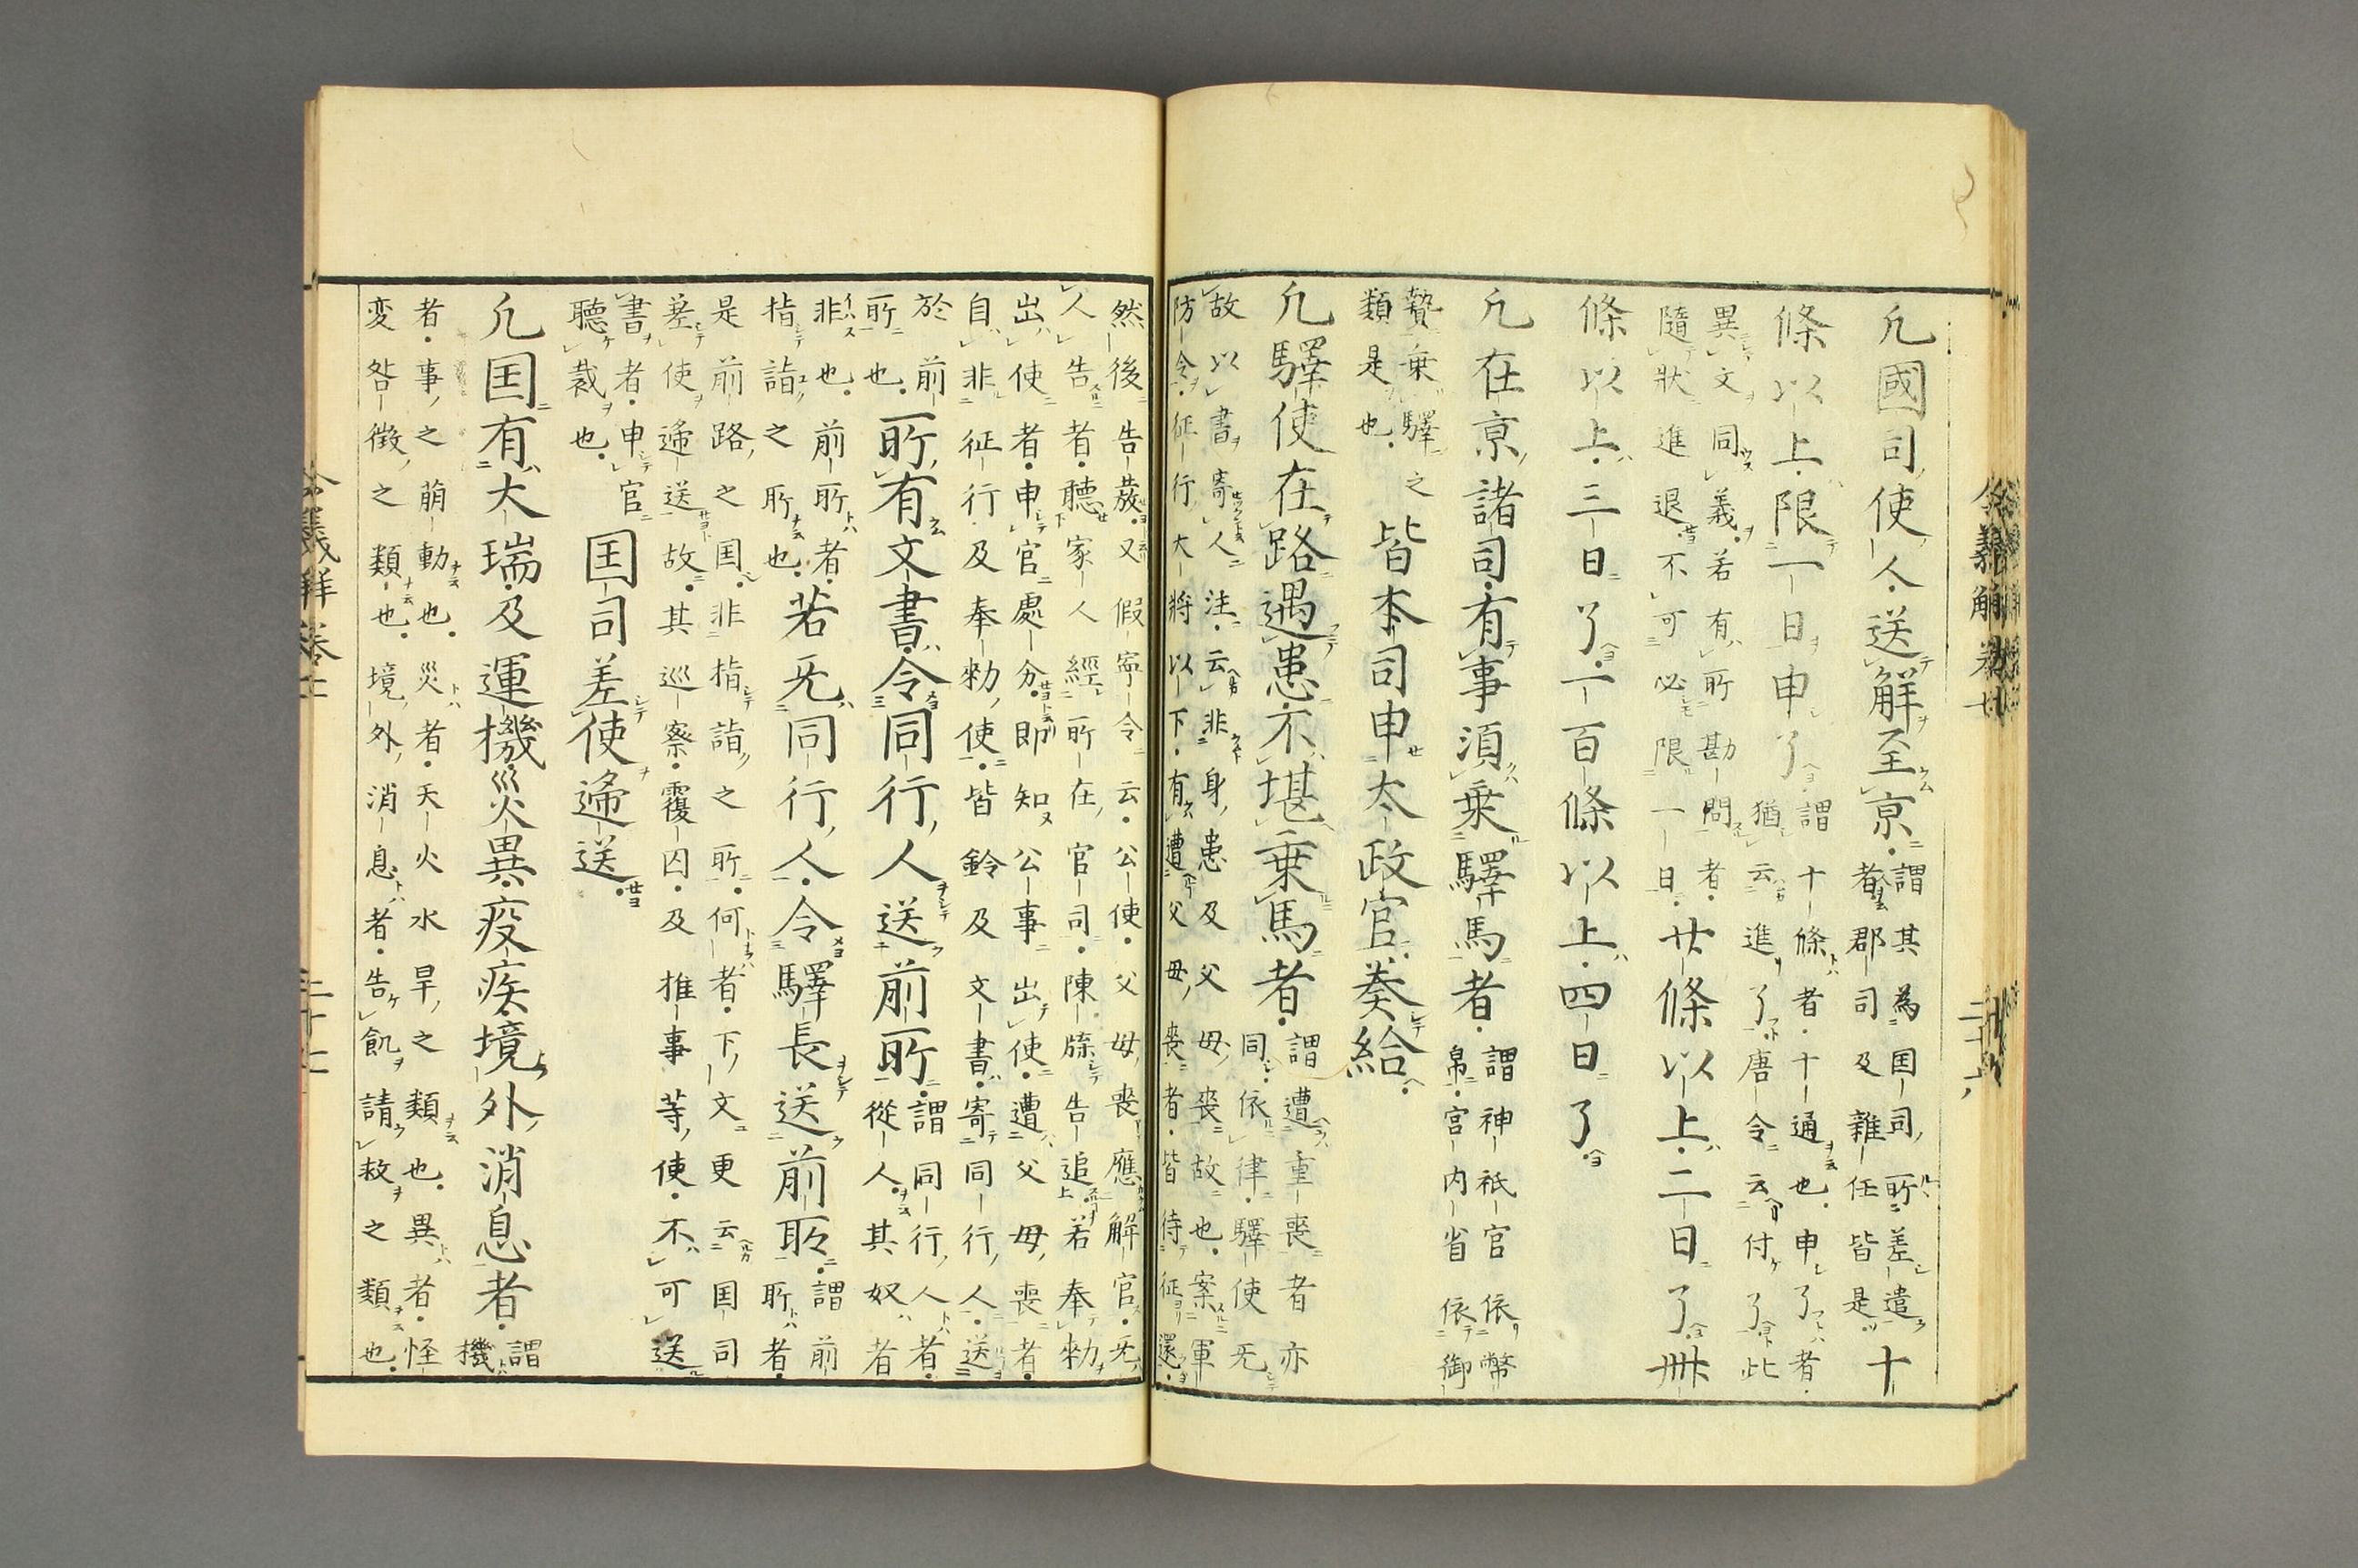 凢國司使人送解至亰
謂其為囯司所差遣
者郡司及雜任皆是
十
條以上限一日申了
謂十條者十通也申了者
猶云進了唐令云付了此
異文同義若有所勘問者
隨狀進退不可必限一日
廿條以上二日了卌
條以上三日了一百條以上四日了
凢在亰諸司有事須乗驛馬者
謂神祇官依幣
帛宮内省依御
贄乗驛之
類是也
皆本司申太政官奏給
凢驛使在路遇患不堪乗馬者
謂遭重喪者亦
同依律驛使无
故以書寄人注云非身患及父母喪故也案軍
防令征行大将以下有遭父母喪者皆待征還
然後告蕟又假寧令云公使父母喪應解官无
人告者聽家人經所在官司陳牒告追若奉勅
出使者申官處分即知公事出使遭父母喪者
自非征行及奉勅使皆鈴及文書寄同行人送
於前
所也
所有文書令同行人送前所
謂同行人者
從人其奴者
非也前所者
指詣之所也
若无同行人令驛長送前所
謂前
所者
是前路之囯非指詣之所何者下文更云囯司
差使逓送故其巡察覆囚及推事等使不可送
書者申官
聽裁也
囯司差使逓送
凢囯有大瑞及運機災異疫疾境外消息者
謂
機
者事之萠動也災者天火水旱之類也異者怪
変咎徴之類也境外消息者告飢請救之類也